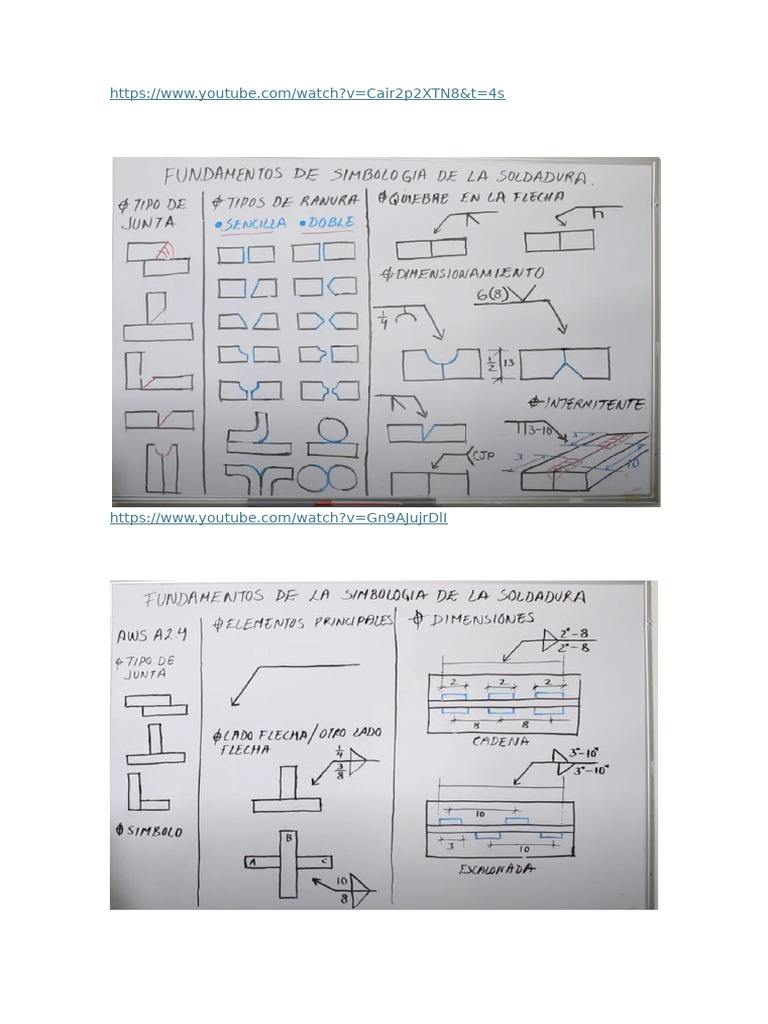 https://www.youtube.com/watch?v=Cair2p2XTN8&t=4s
FUNDAMENTOS DE SIMBOLOGIA DE LA SOLDADURA.
TIPO DE
JUNTA
TIPOS DE RANURA
• SENCILLA • DOBLE
QUIEBRE EN LA FLECHA
DIMENSIONAMIENTO
6(8)
1/4
1/2 13
INTERMITENTE
3-10
3
3
10
CJP
https://www.youtube.com/watch?v=Gn9AJujrDlI
FUNDAMENTOS DE LA SIMBOLOGIA DE LA SOLDADURA
AWS A2.4
TIPO DE
JUNTA
SIMBOLO
ELEMENTOS PRINCIPALES
LADO FLECHA/OTRO LADO
FLECHA
1/4
3/8
B
A C
10
8
DIMENSIONES
2"-8
2"-8
2 2 2
8 8
CADENA
3"-10"
3"-10"
10
3 10
ESCALONADA